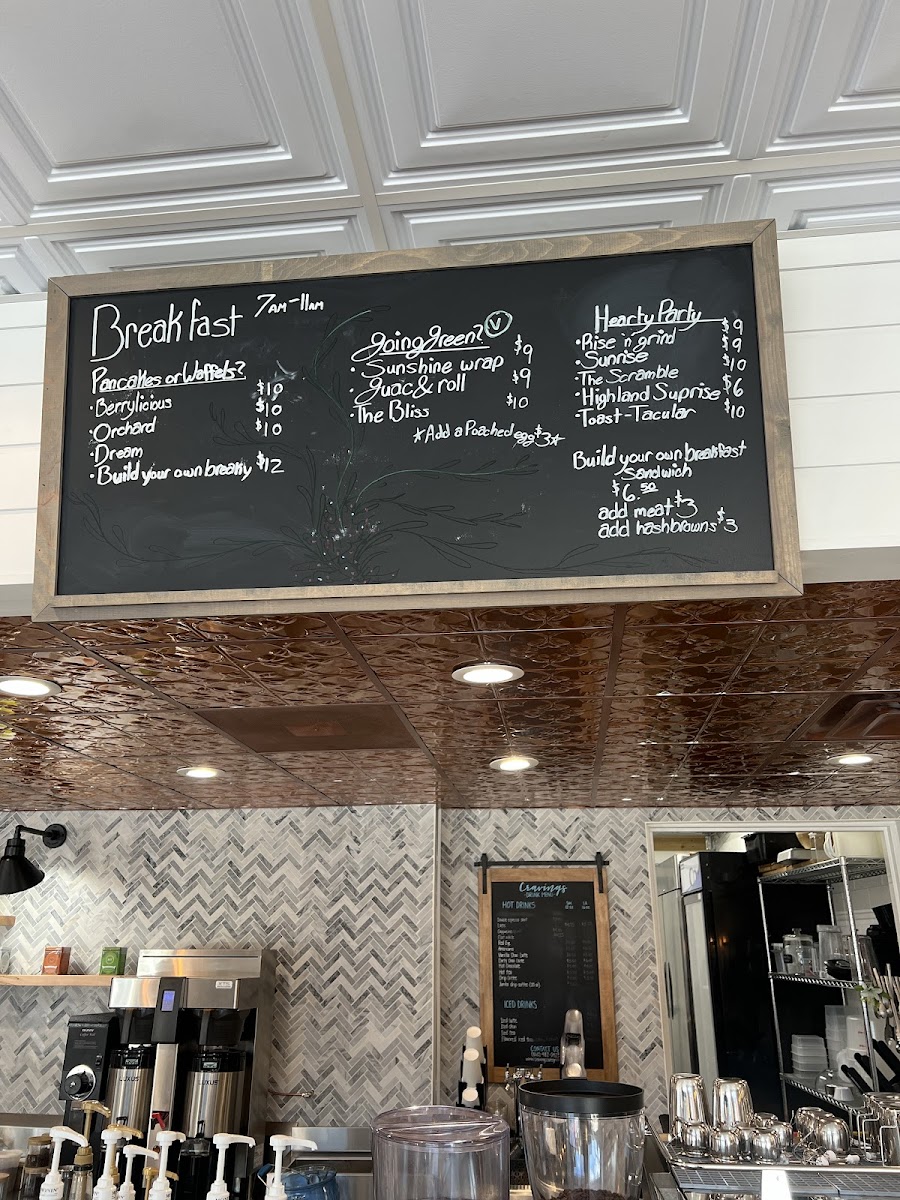 Breakfast 7AM-11AM
Pancakes or Waffels?
·Berrylicious $10
·Orchard $10
·Dream $10
·Build your own breaky $12
going green? V
·Sunshine wrap $9
·guac & roll $9
·The Bliss $10
*Add a Poached egg $3*
Hearty Party
·Rise 'n' grind $9
·Sunrise $9
·The Scramble $10
·Highland Suprise $6
·Toast-Tacular $10
Build your own breakfast
Sandwich
$6.50
add meat $3
add hashbrowns $3
Cravings
DRINK MENU
HOT DRINKS
Hot Chocolate
ICED DRINKS
Iced latte
Iced tea
CONTACT US
LUXUS
LUXUS